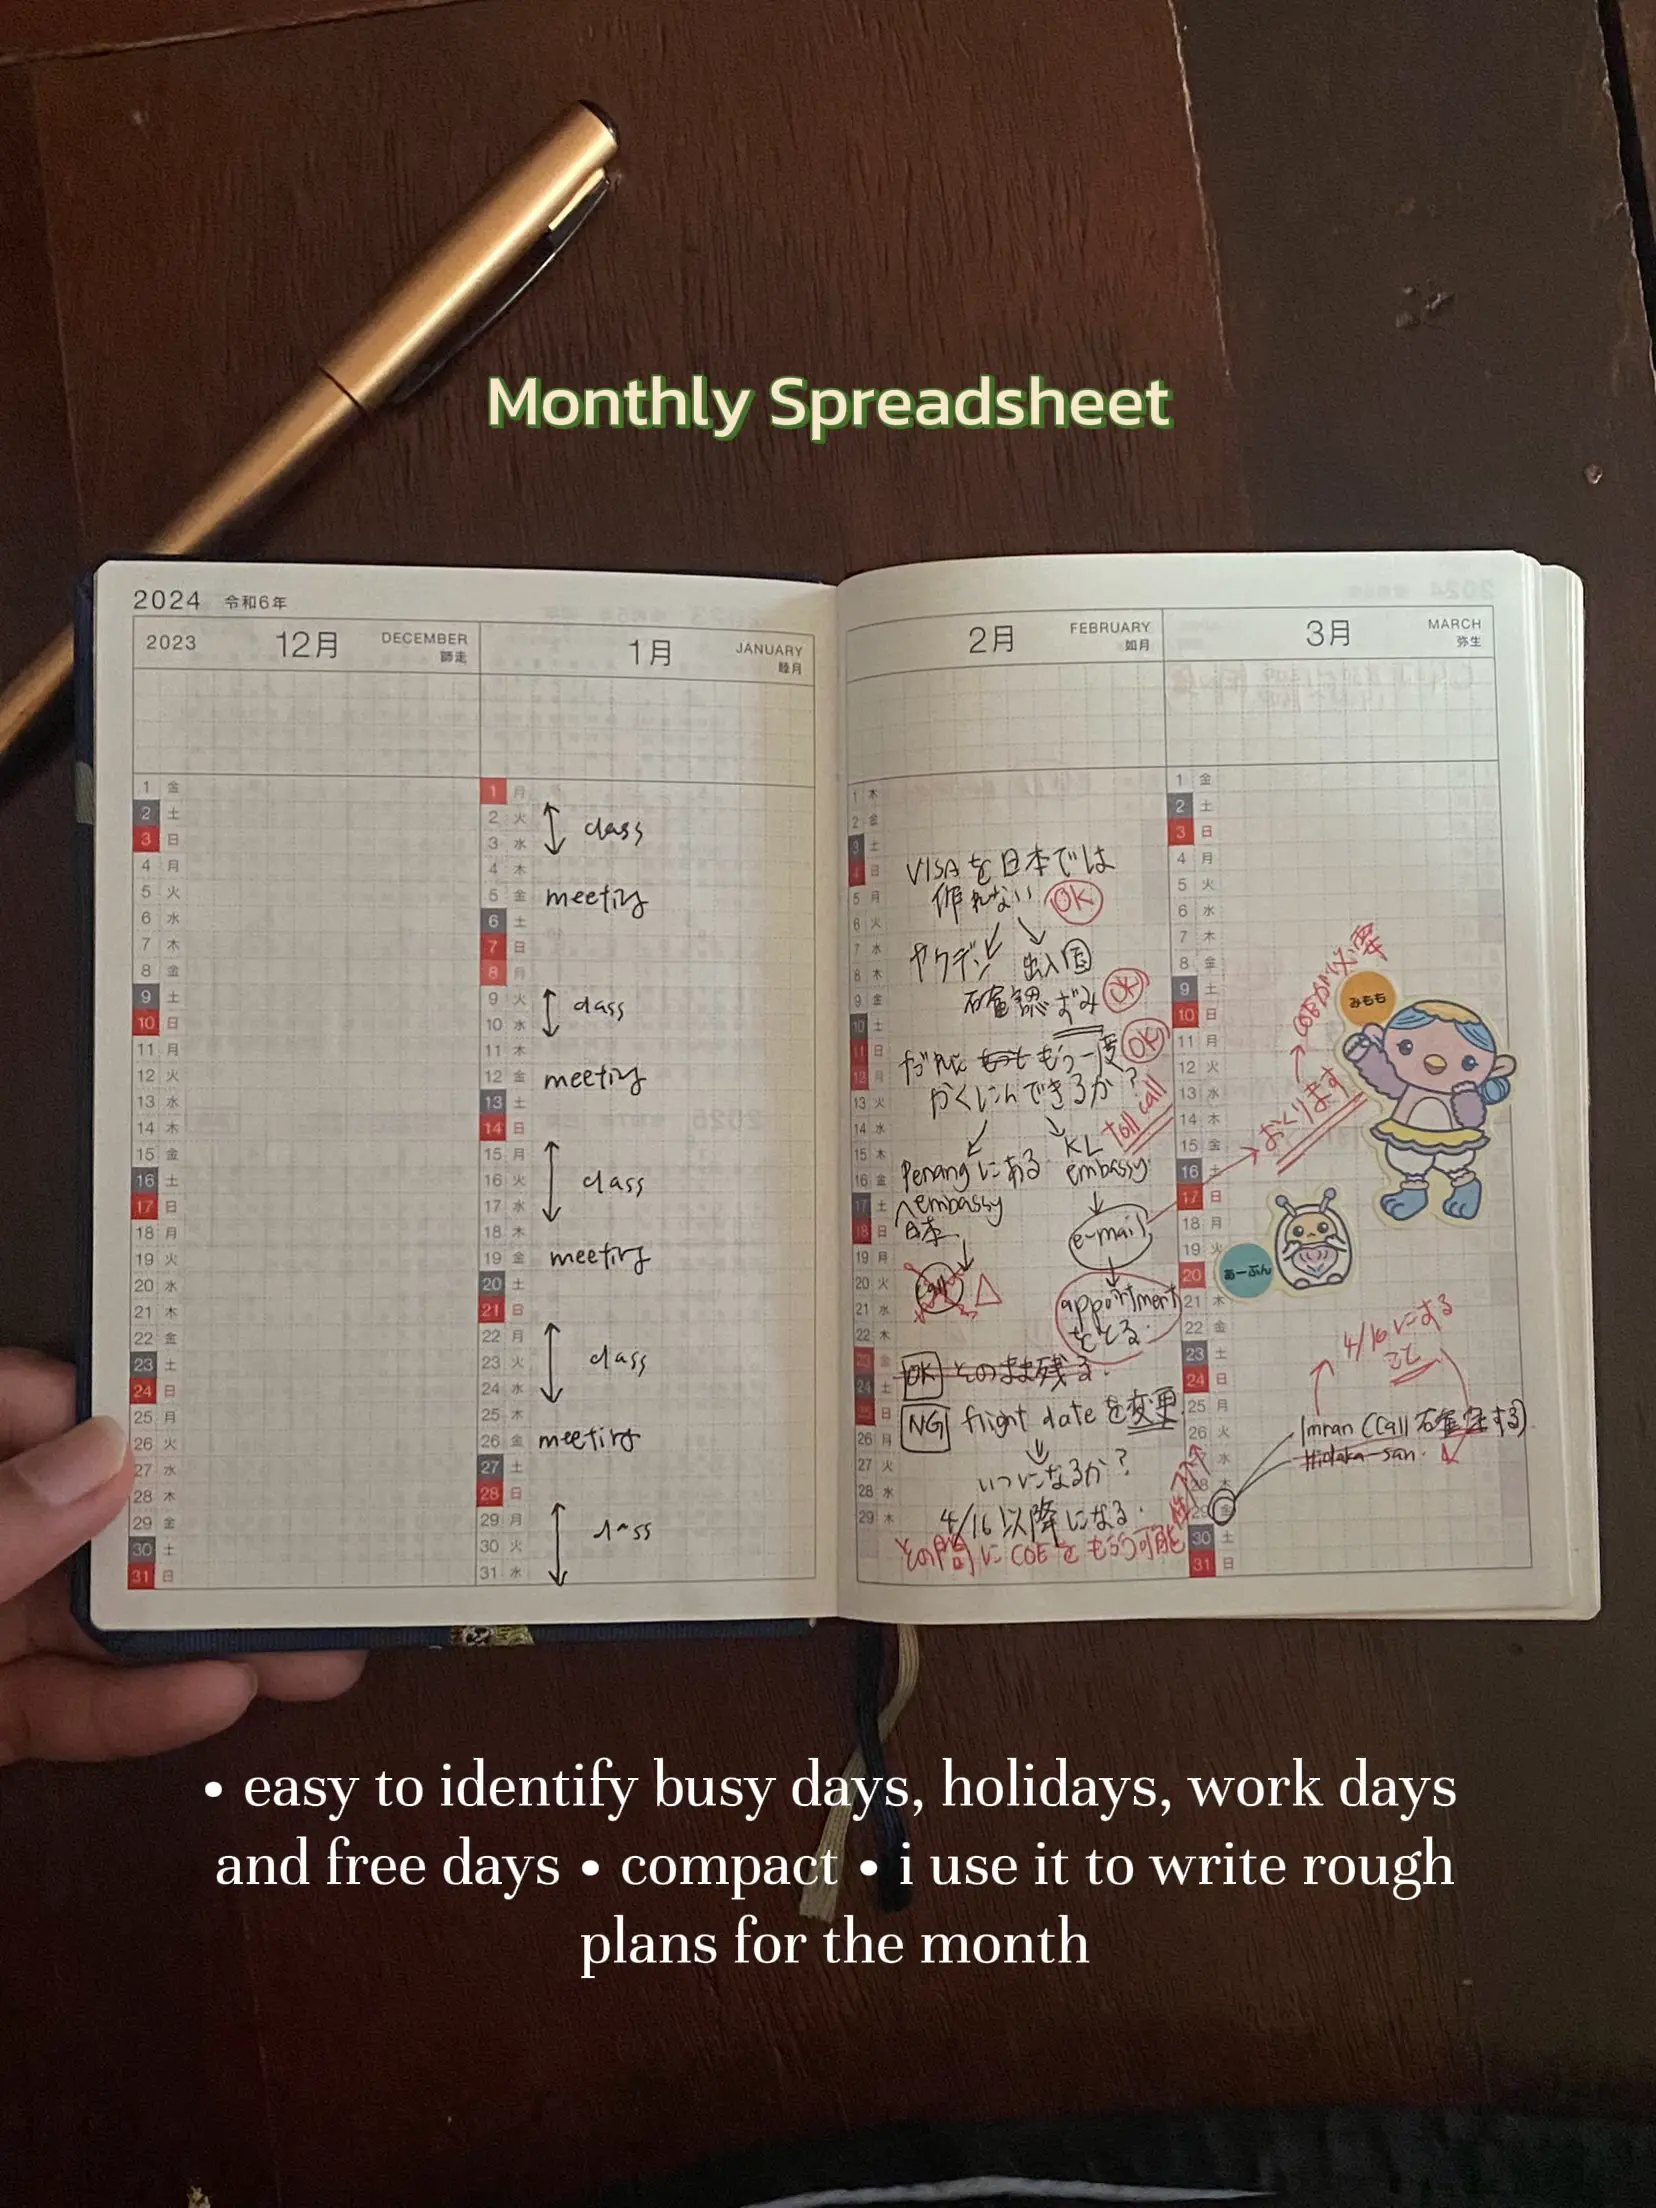 Monthly Spreadsheet
2024 令和6年
2023 12月 DECEMBER 師走
1月 JANUARY 睦月
2月 FEBRUARY 如月
3月 MARCH 弥生
1 金
2 土
3 日
4 月
5 火
6 水
7 木
8 金
9 土
10 日
11 月
12 火
13 水
14 木
15 金
16 土
17 日
18 月
19 火
20 水
21 木
22 金
23 土
24 日
25 月
26 火
27 水
28 木
29 金
30 土
31 日
1 月
2 火
class
3 水
4 木
5 金 meeting
6 土
7 日
8 月
9 火 class
10 水
11 木
12 金 meeting
13 土
14 日
15 月
16 火 class
17 水
18 木
19 金 meeting
20 土
21 日
22 月
23 火 class
24 水
25 木
26 金 meeting
27 土
28 日
29 月
class
30 火
31 水
1 木
2 金
3 土
4 日
5 月
6 火
7 水
8 木
9 金
10 土
11 日
12 月
13 火
14 水
15 木
16 金
17 土
18 日
19 月
20 火
21 水
22 木
23 金
24 土
25 日
26 月
27 火
28 水
29 木
VISAを日本では
作れない OK
ヤクデン 出入国
確認ずみ OK
だれに もう一度 OK
かくにんできるか?
toll call
Penangにある
embassy
日本
KL
embassy
e-mail
appointment
をとる.
OK そのまま残る.
NG flight dateを変更
いつになるか?
4/16以降になる.
その間にCOEをもらう可能性
1 金
2 土
3 日
4 月
5 火
6 水
7 木
8 金
9 土
10 日
11 月
12 火
13 水
14 木
15 金
16 土
17 日
18 月
19 火
20
21 木
22 金
23 土
24 日
25 月
26 火
水
28 木
29 金
30 土
31 日
COEが必要
おくります
みもも
あーぶん
4/16にする
こと
Imran (Call 確定する)
Hidaka-san.
• easy to identify busy days, holidays, work days
and free days • compact • i use it to write rough
plans for the month